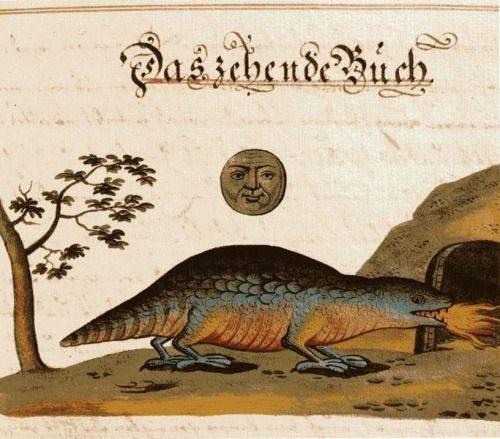 Das zehende Büch